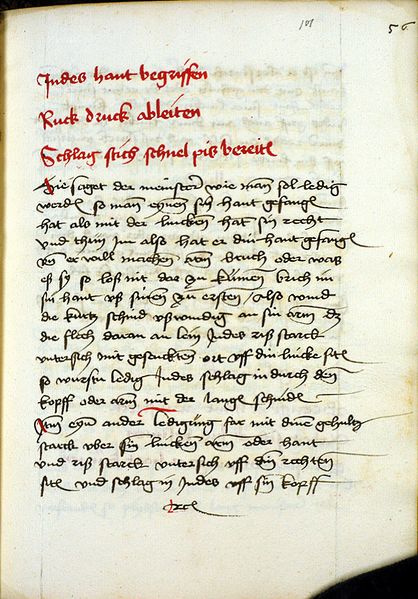 101
56
Indes hant begriffen
Ruck druck ableiten
Schlag stich schnel piß bereitt
Hie saget der meinster wie man sol ledig
werden so man eynem sin hant gefangen
hat also mit der lincken hat sin recht
vnd thun im also hat er din hant gefangen
vnd er woll machen arm bruch oder was
eß sy so loß nit dar zu kumen brich im
sin hant vß sinen zu ersten / Also wind
die kurtz schnid vßwendig an sin arm daz
die flech daran an lein Indes riß starck
vntersich mit gesenckten ort vff din lincke siten
so wurstu ledig Indes schlag in durch den
kopff oder arm mit der langen schniden
Item eyn ander ledigung far mit dinem gehultz
starck vber sin lincken arm oder hant
vnd riß starck vntersich vff din rechten
siten vnd schlag in Indes vff sin kopff